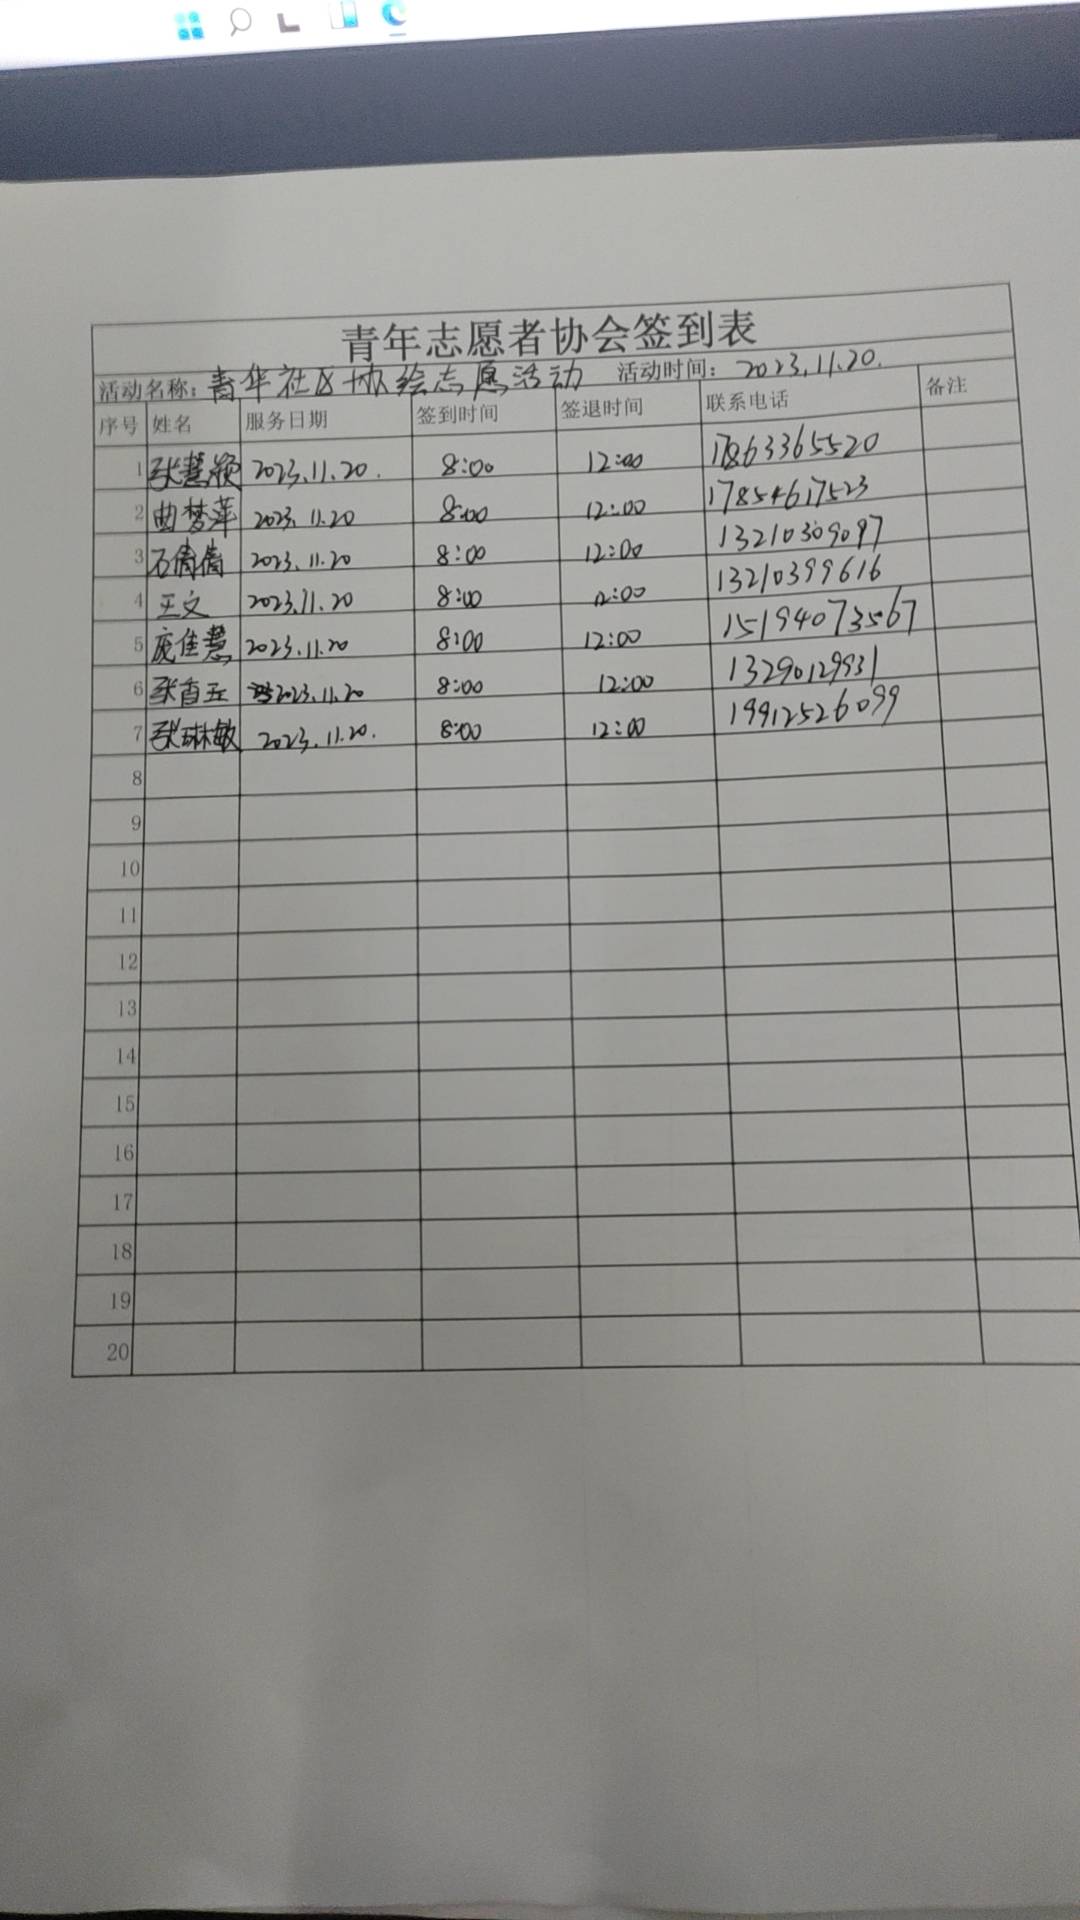 青年志愿者协会签到表
活动名称：青华社区协绘志愿活动 活动时间：2023.11.20.
序号 姓名 服务日期 签到时间 签退时间 联系电话 备注
1 张慧颖 2023.11.20. 8:00 12:00 17863365520
2 曲梦萍 2023.11.20 8:00 12:00 17854617523
3 石倩倩 2023.11.20 8:00 12:00 13210309097
4 王文 2023.11.20 8:00 12:00 13210399616
5 庞佳慧 2023.11.20 8:00 12:00 15194073567
6 张香玉 2023.11.20 8:00 12:00 13290129931
7 张琳敏 2023.11.20. 8:00 12:00 19912526099
8
9
10
11
12
13
14
15
16
17
18
19
20